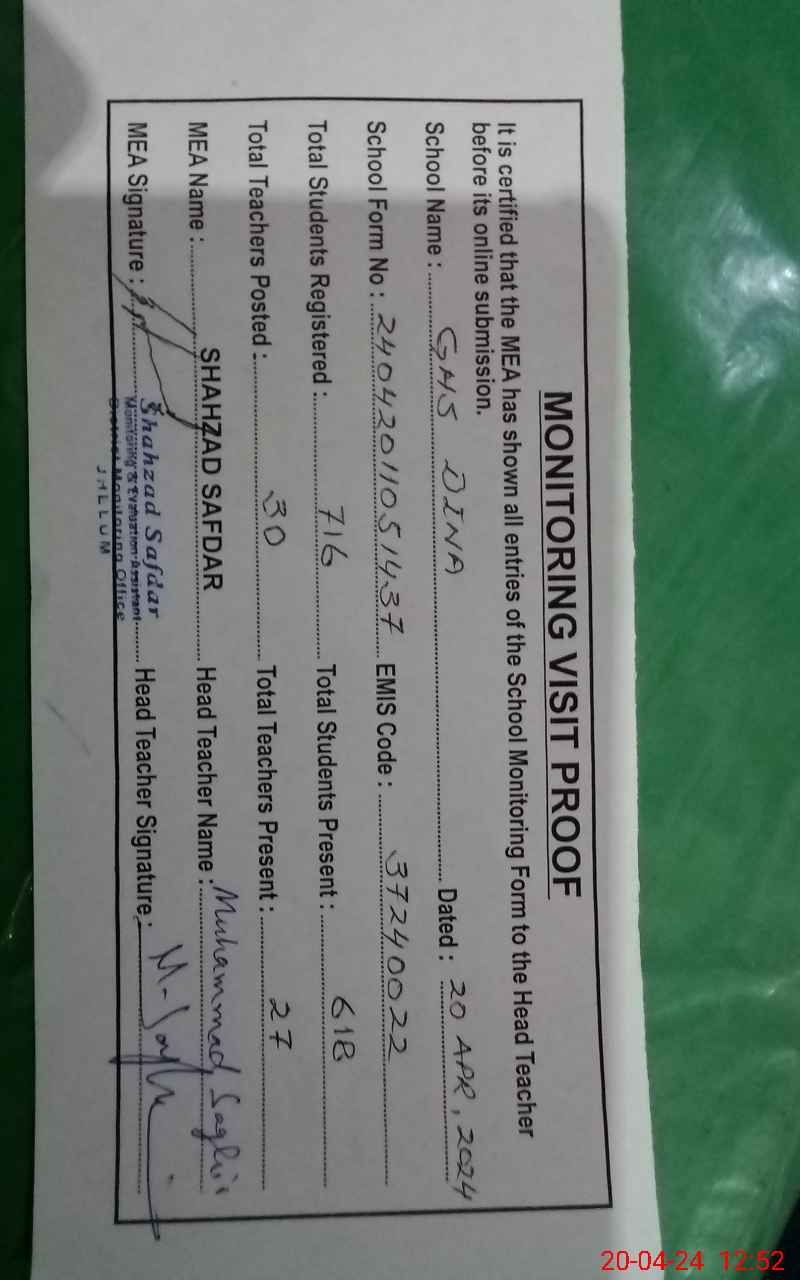 MONITORING VISIT PROOF
It is certified that the MEA has shown all entries of the School Monitoring Form to the Head Teacher
before its online submission.
School Name : GHS DINA Dated : 20 APR, 2024
School Form No : 24042011051437 EMIS Code : 37240022
Total Students Registered : 716 Total Students Present : 618
Total Teachers Posted : 30 Total Teachers Present : 27
MEA Name : SHAHZAD SAFDAR Head Teacher Name : Muhammad Saghir
MEA Signature : Head Teacher Signature :
Shahzad Safdar
Monitoring & Evaluation Assistant
District Monitoring Office
JHELUM
20-04-24 12:52